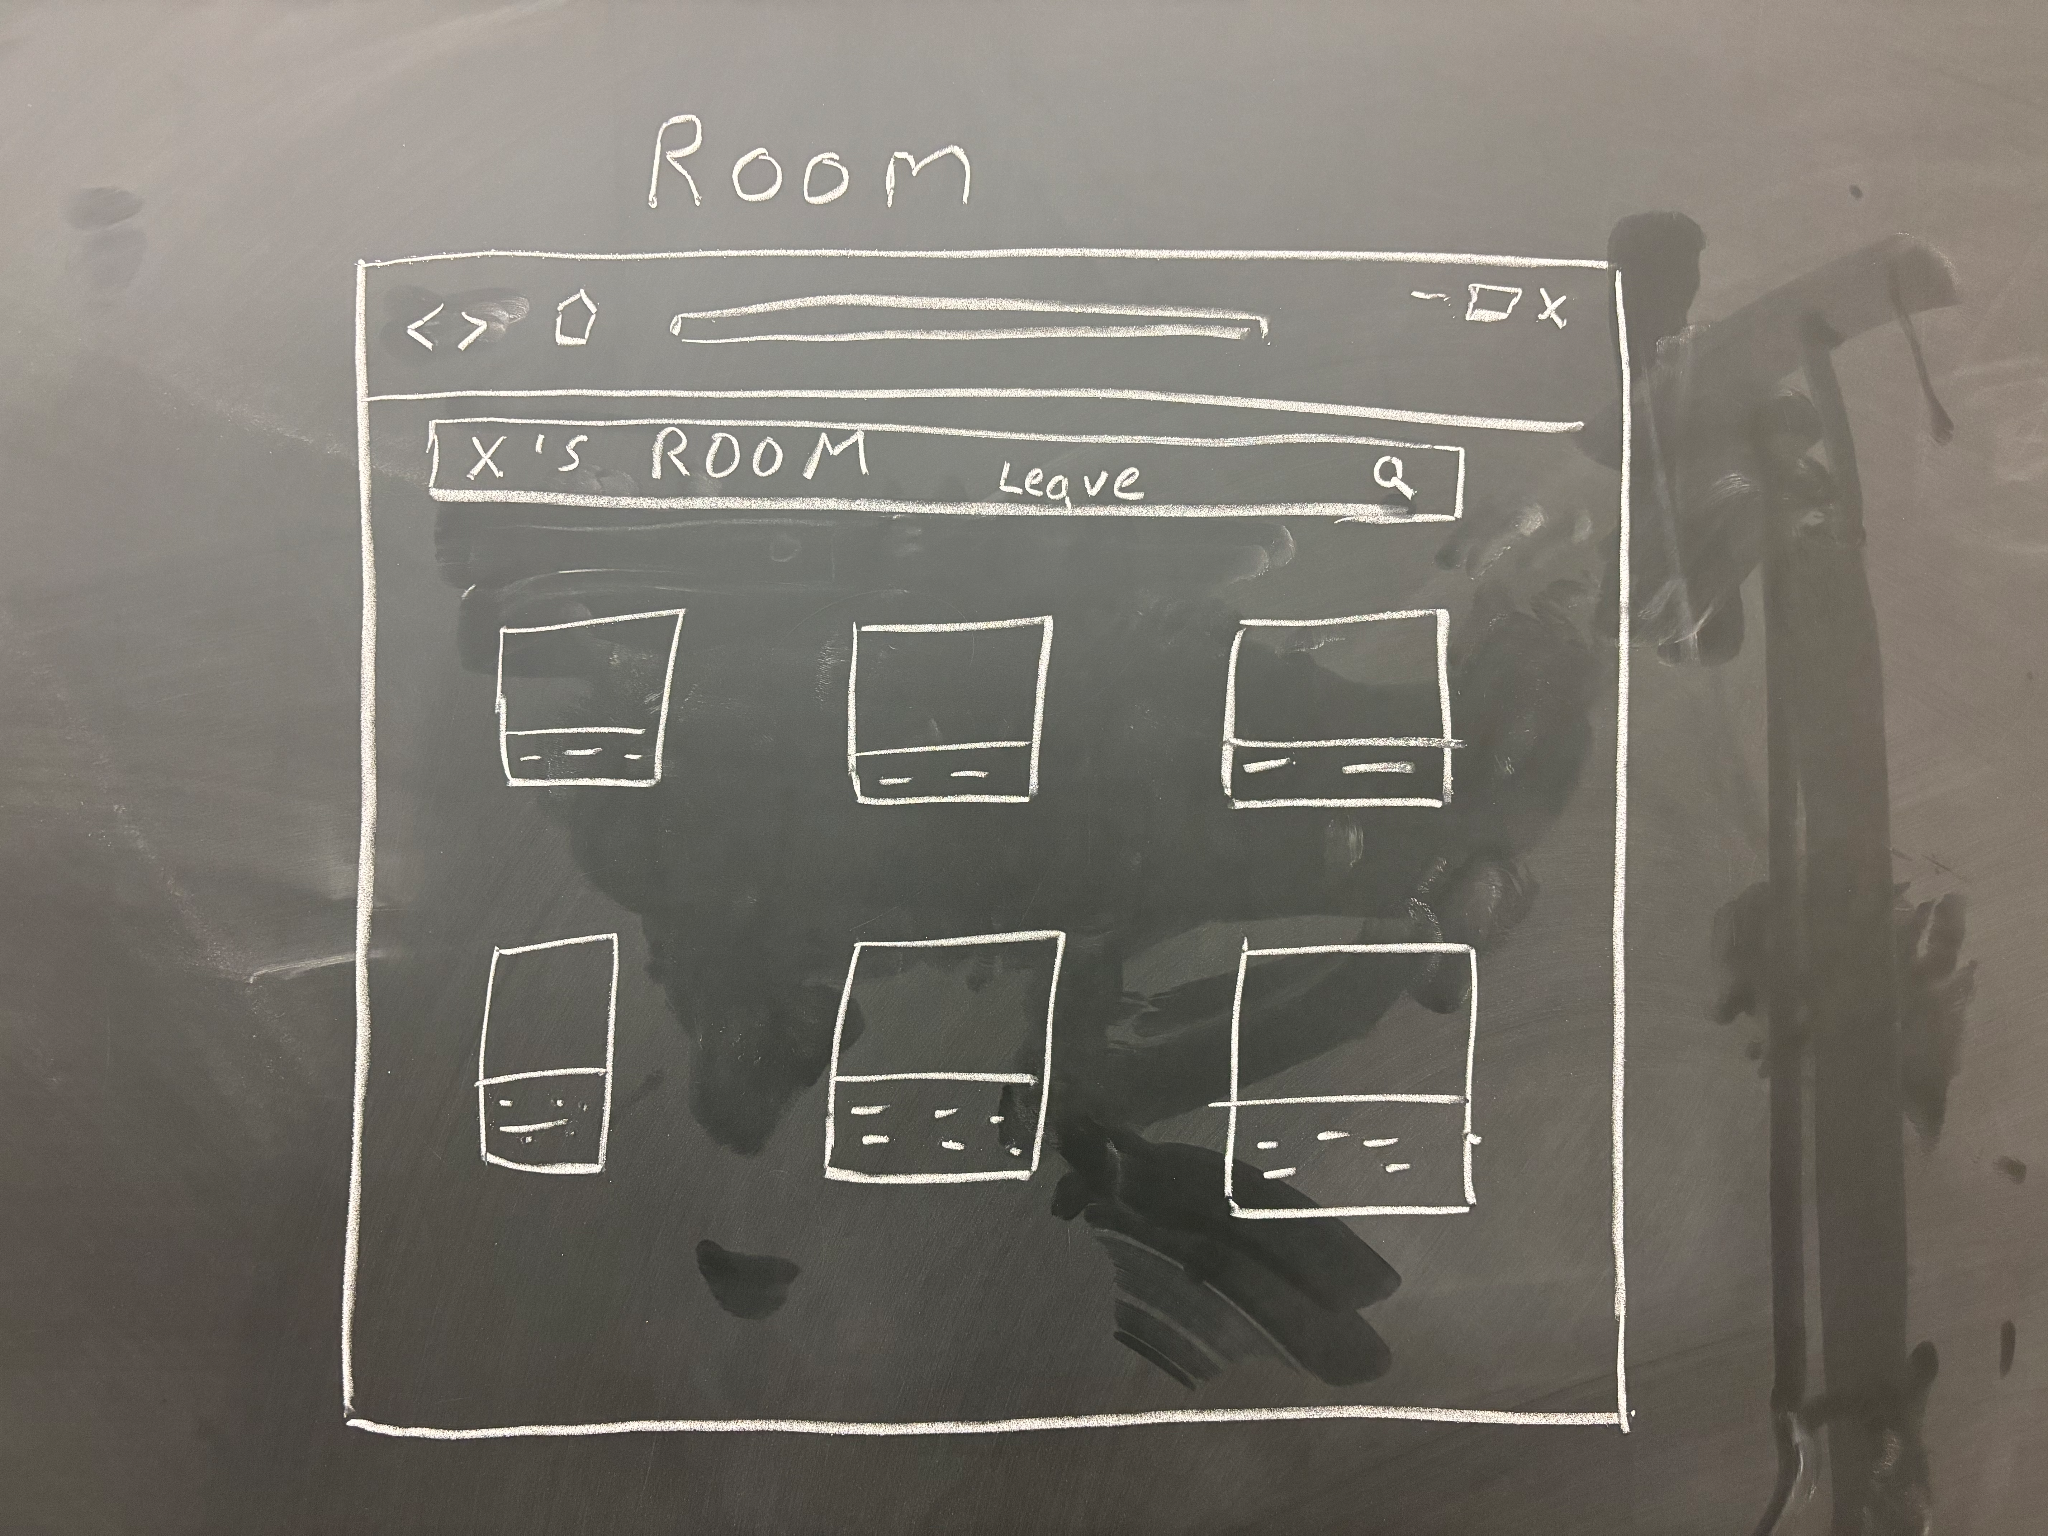 Room
< > - X
X's ROOM Leave